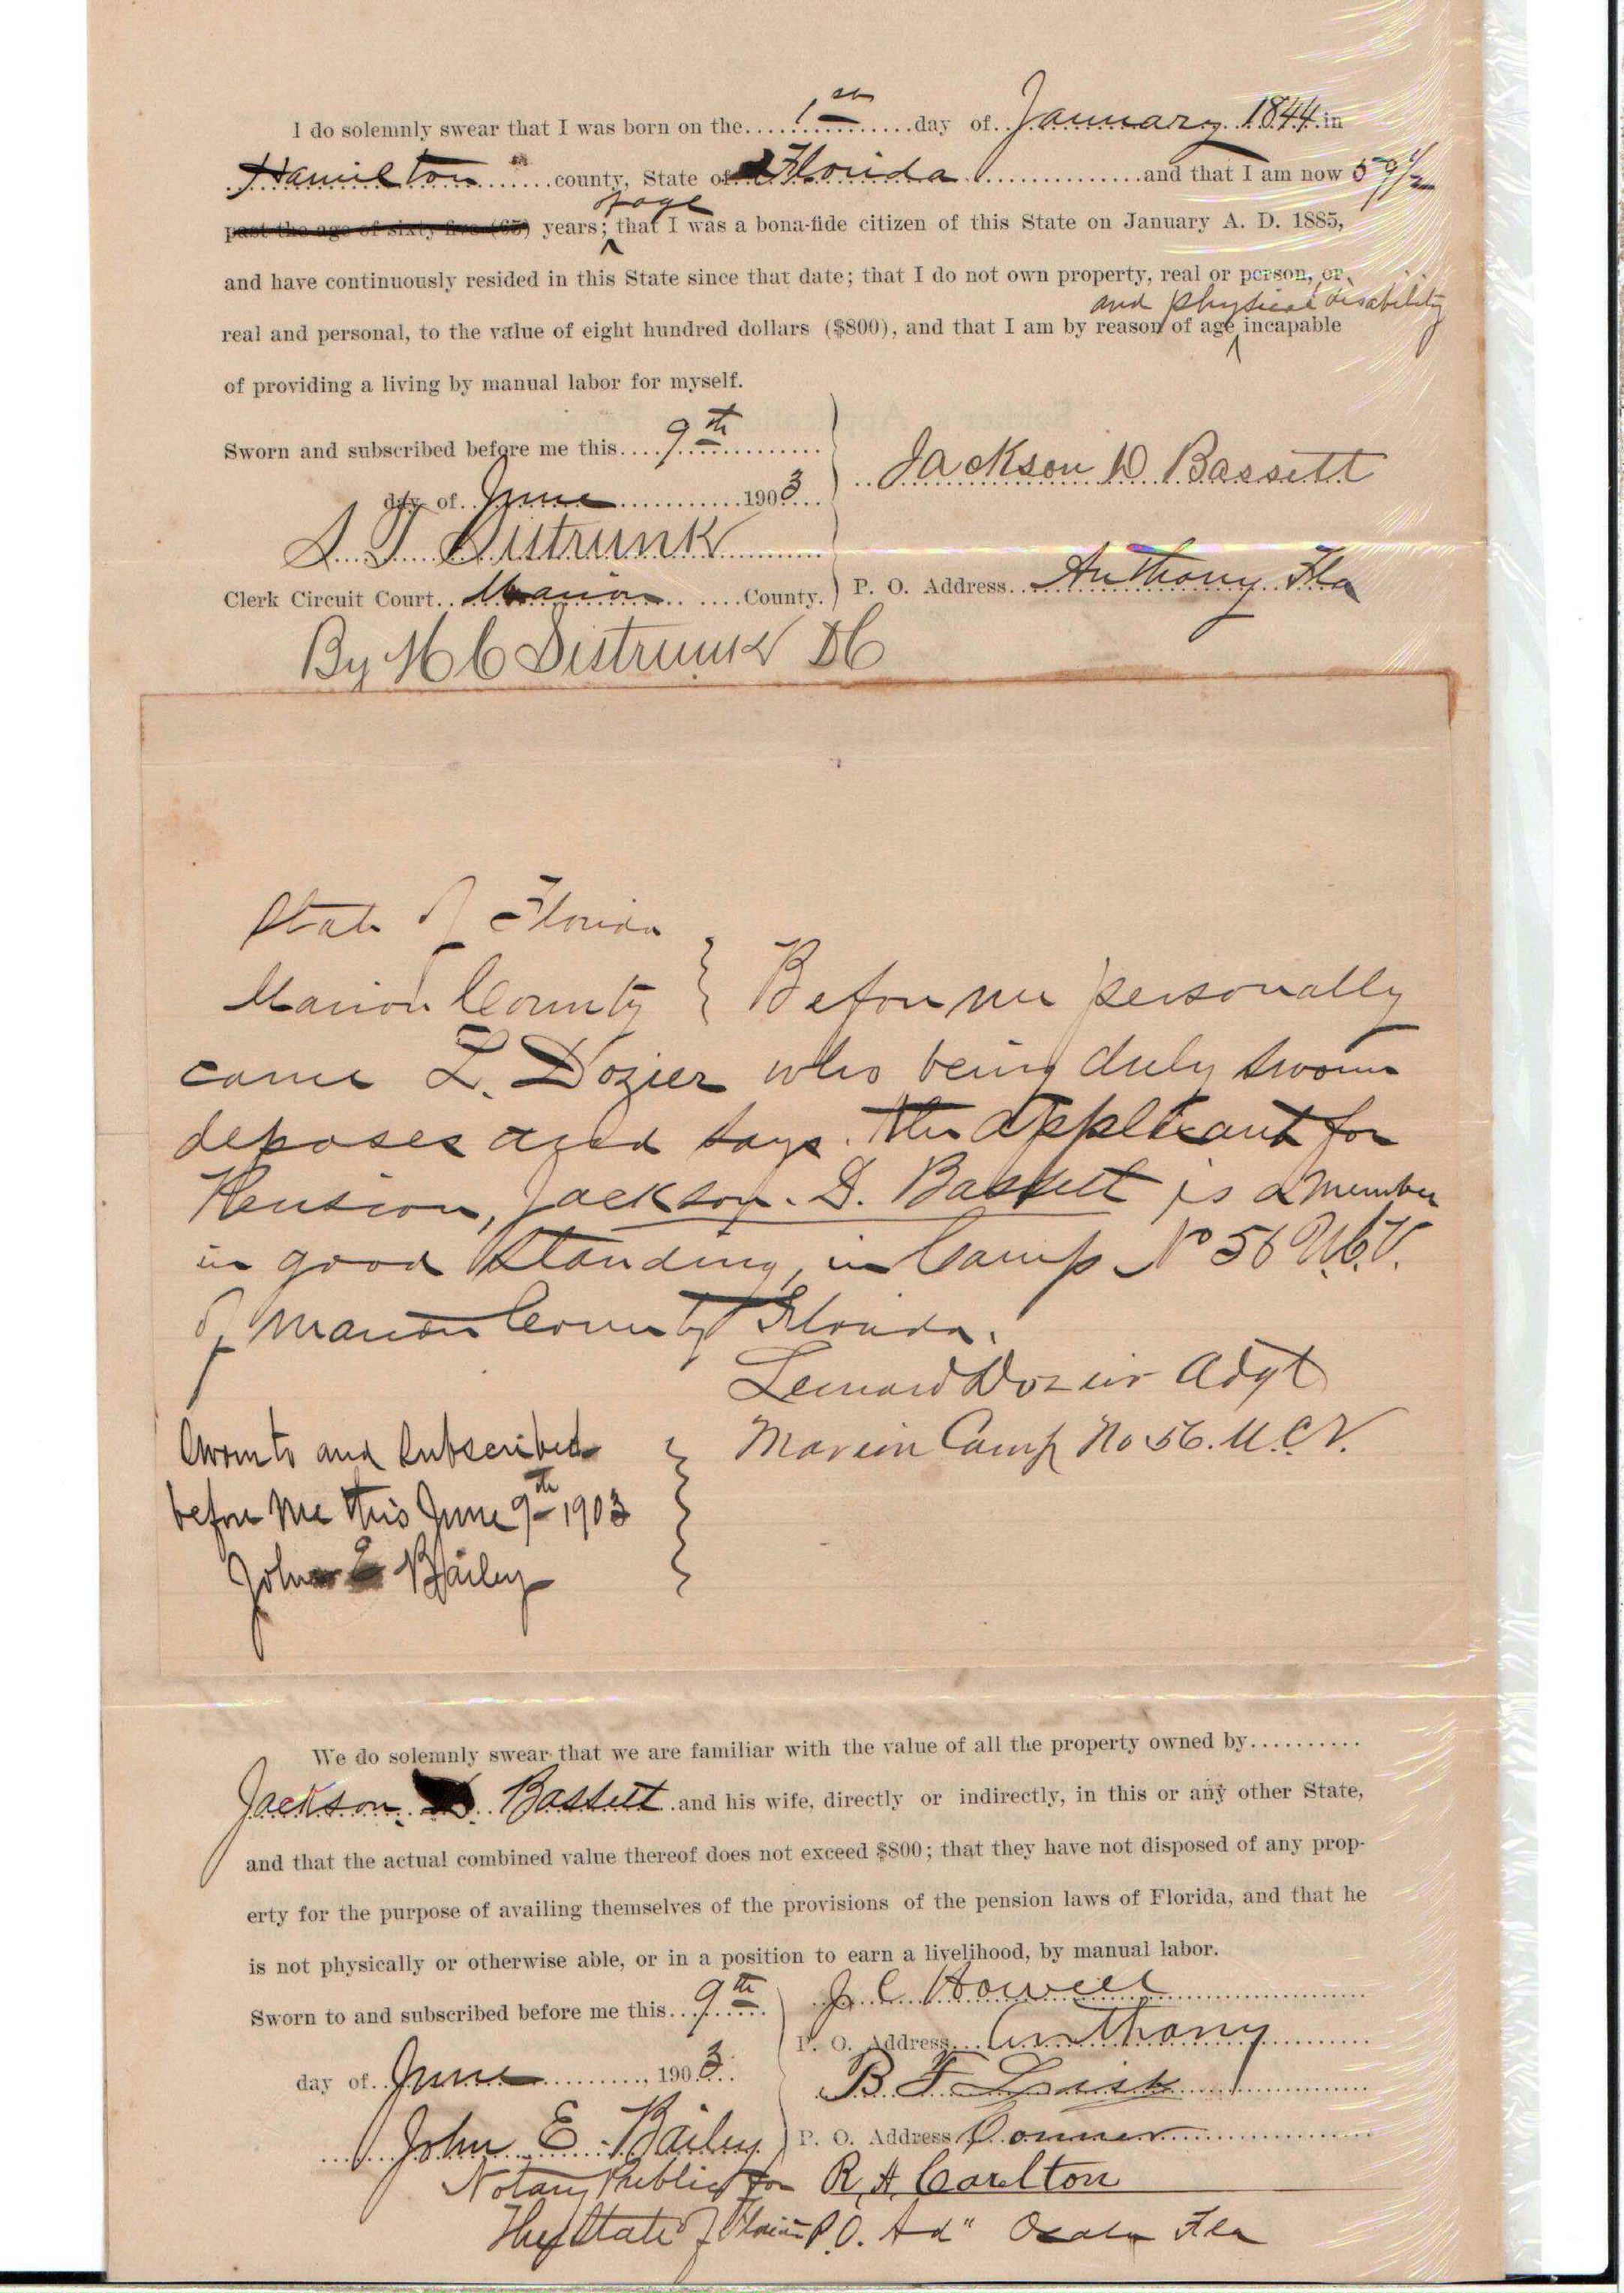 I do solemnly swear that I was born on the 1st day of January 1844 in
Hamilton county, State of Florida and that I am now 59 1/2
of age
past the age of sixty-five (65) years; that I was a bona-fide citizen of this State on January A. D. 1885,
and have continuously resided in this State since that date; that I do not own property, real or person, or
and physical disability
real and personal, to the value of eight hundred dollars ($800), and that I am by reason of age incapable
of providing a living by manual labor for myself.
Sworn and subscribed before me this 9th
Jackson D Bassett
day of June 1903
S. T. Sistrunk
Clerk Circuit Court Marion County. P. O. Address Anthony Fla
By H C Sistrunk DC
State of Florida
Marion County } Before me personally
came L. Dozier who being duly sworn
deposes and says. the applicant for
Pension, Jackson. D. Bassett is a member
in good standing, in Camp No 56 U.C.V.
of Marion County Florida.
Leonard Dozier Adgt
Sworn to and Subscribed Marion Camp No 56. U.C.V.
before me this June 9th 1903
John E Bailey
We do solemnly swear that we are familiar with the value of all the property owned by
Jackson D. Bassett and his wife, directly or indirectly, in this or any other State,
and that the actual combined value thereof does not exceed $800; that they have not disposed of any prop-
erty for the purpose of availing themselves of the provisions of the pension laws of Florida, and that he
is not physically or otherwise able, or in a position to earn a livelihood, by manual labor.
Sworn to and subscribed before me this 9th J. C. Howell
P. O. Address Anthony
day of June, 1903 B F
John E. Bailey P. O. Address Conner
Notary Public for R. A. Carlton
The State of Florida P.O. Ad" Ocala Fla